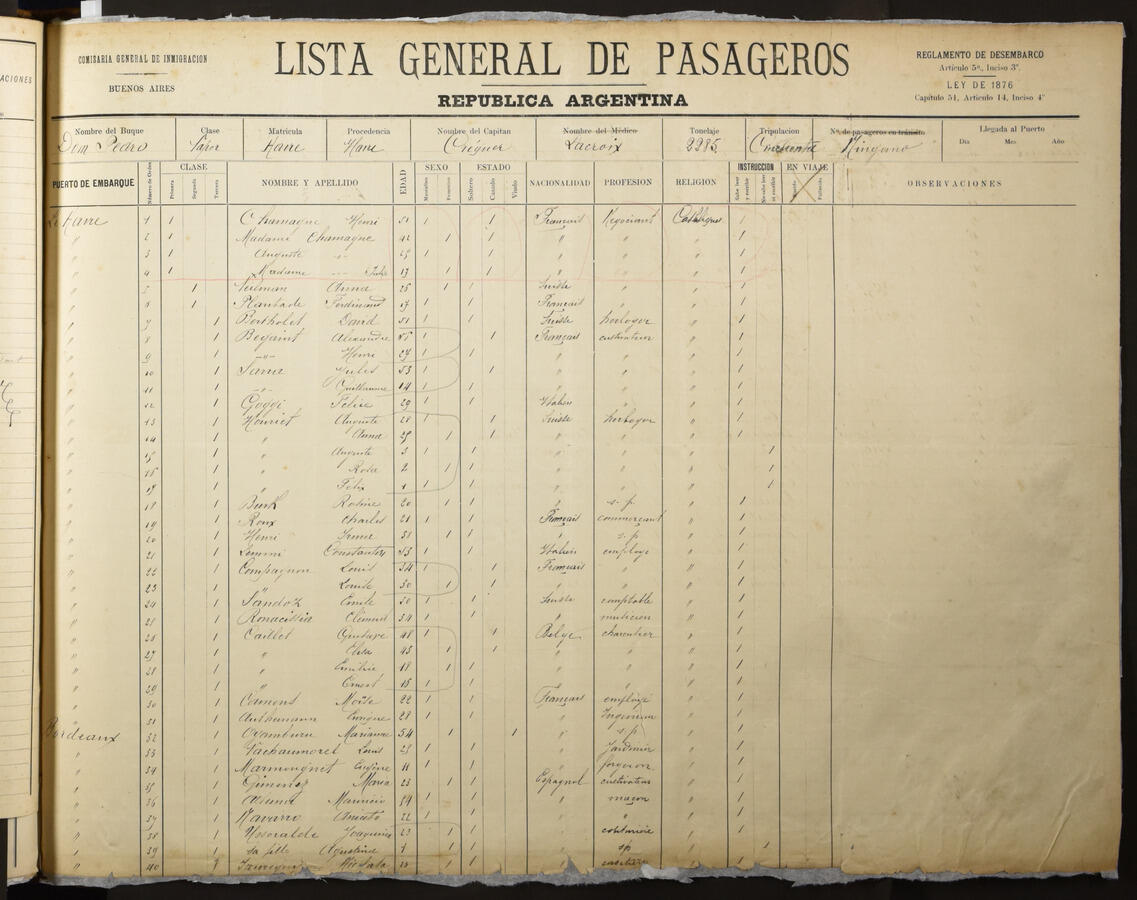 COMISARIA GENERAL DE INMIGRACION
BUENOS AIRES
LISTA GENERAL DE PASAGEROS
REPUBLICA ARGENTINA
REGLAMENTO DE DESEMBARCO
Artículo 5º, Inciso 3º
LEY DE 1876
Capítulo 51, Artículo 14, Inciso 4º
Nombre del Buque Clase Matrícula Procedencia Nombre del Capitan Nombre del Médico Tonelaje Tripulacion Nº de pasageros en tránsito Llegada al Puerto
Dom Pedro Vapor Havre Havre Crequer Lacroix 2985 Cincuenta Ninguno Dia Mes Año
PUERTO DE EMBARQUE Número de Orden CLASE Primera Segunda Tercera NOMBRE Y APELLIDO EDAD SEXO Masculino Femenino ESTADO Soltero Casado Viudo NACIONALIDAD PROFESION RELIGION INSTRUCCION EN VIAJE OBSERVACIONES
Le Havre 1 1 Chamagne Henri 51 1 1 Français Negociant Catholique
" 2 1 Madame Chamagne 42 1 1 " " 1
" 3 1 Auguste 1 1 " " 1
" 4 1 Madame 1 1 " 1
" 5 1 Anna 25 1 1 Suisse " 1
" 6 1 Plantade Ferdinand 1 1 Français " 1
" 7 1 Bertholet David 51 1 1 Suisse horloger " 1
" 8 1 Alexandre 1 1 Français cultivateur " 1
" 9 1 Henri 27 1 1 " " " 1
" 10 1 Jules 53 1 1 " " " 1
" 11 1 Guillaume 14 1 1 " " " 1
" 12 1 Goggi Felice 29 1 1 Italien " " 1
" 13 1 Houriet Auguste 28 1 1 Suisse horloger " 1
" 14 1 " Anna 1 1 " " " 1
" 15 1 " Auguste 3 1 1 " " 1
" 16 1 " Rosa 2 1 1 " " 1
" 17 1 " Felix 1 1 1 " " 1
" 18 1 Burk Rosine 20 1 1 " s. p. " 1
" 19 1 Roux Charles 21 1 1 Français commerçant " 1
" 20 1 Henri Irma 1 1 " s. p " 1
" 21 1 Lemmi Constantin 1 1 Italien employé " 1
" 22 1 Compagnon Louis 34 1 1 Français " " 1
" 23 1 " Louise 30 1 1 " " " 1
" 24 1 Sandoz Emile 30 1 1 Suisse comptable " 1
" 25 1 Clément 34 1 1 " musicien " 1
" 26 1 Caillet Gustave 48 1 1 Belge charentier " 1
" 27 1 " Elisa 45 1 1 " " " 1
" 28 1 " Emilie 18 1 1 " " " 1
" 29 1 " Ernest 15 1 1 " " " 1
" 30 1 Moïse 22 1 1 Français employé " 1
" 31 1 28 1 1 " Ingenieur " 1
Bordeaux 32 1 Oyamburu Marianne 54 1 1 " s. p " 1
" 33 1 Louis 1 1 " Jardinier " 1
" 34 1 Eugène 1 1 " forgeron " 1
" 35 1 Gimenez Maria 23 1 1 Espagnol cultivateur " 1
" 36 1 Mauricio 1 1 " maçon " 1
" 37 1 Navarro Aniceto 22 1 1 " " 1
" 38 1 Joaquina 23 1 " couturière " 1
" 39 1 sa fille Agustine 1 1 " sp " 1
" 40